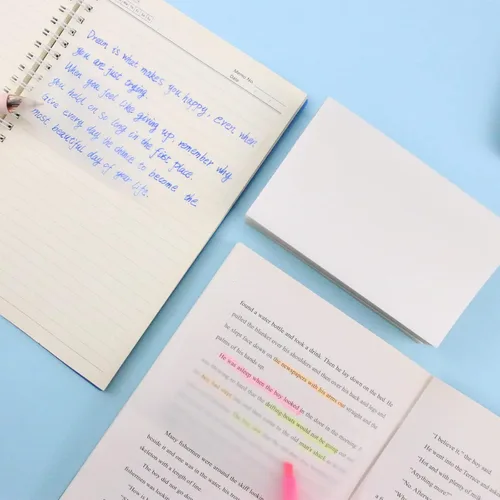 Memo No.
Date
Dream is what makes you happy, even when
you are just trying.
When you feel like giving up, remember why
you hold on so long in the first place.
Give every day the chance to become the
most beautiful day of your life.
found a water bottle and took a drink. Then he lay down on the bed. He
pulled the blanket over his shoulders and then over his back and legs and
he slept face down on the newspapers with his arms out straight and the
palms of his hands up.
He was asleep when the boy looked in the door in the morning. It
was blowing so hard that the drifting-boats would not be going out and
Many fishermen were around the skiff looking
beside it and one was in the water, his trousers
skeleton with a length of line.
The boy did not go down.
"How is
"I believe it," the boy said.
He went into the Terrace and
"Hot and with plenty of
"Anything
"No.